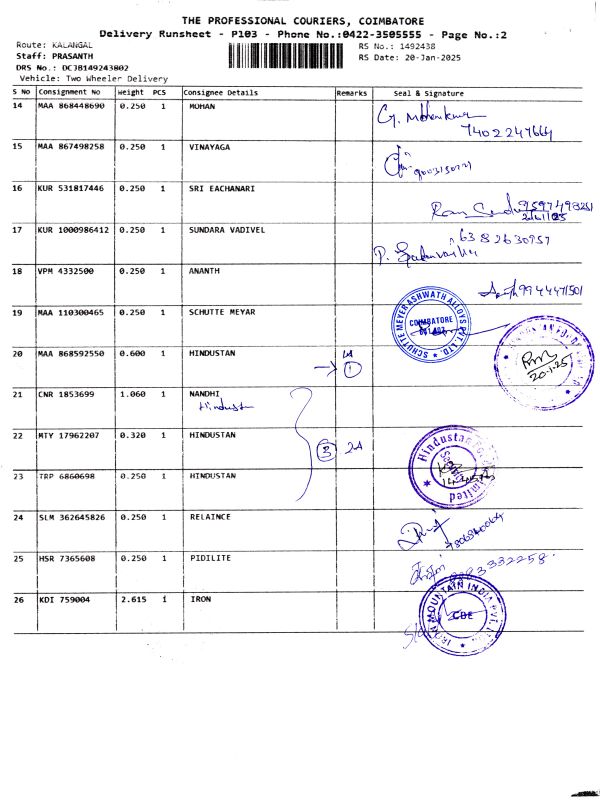 THE PROFESSIONAL COURIERS, COIMBATORE
Delivery Runsheet - P103 - Phone No.:0422-3505555 - Page No.:2
Route: KALANGAL
RS No.: 1492438
Staff: PRASANTH
RS Date: 20-Jan-2025
DRS No.: DCJB149243802
Vehicle: Two Wheeler Delivery
S No Consignment No Weight PCS Consignee Details Remarks Seal & Signature
14 MAA 868448690 0.250 1 MOHAN
7402247664
15 MAA 867498258 0.250 1 VINAYAGA
16 KUR 531817446 0.250 1 SRI EACHANARI
17 KUR 1000986412 0.250 1 SUNDARA VADIVEL
6382630957
18 VPM 4332500 0.250 1 ANANTH
9944471501
19 MAA 110300465 0.250 1 SCHUTTE MEYAR
SCHUTTE MEYER ASHWATH ALLOYS PVT. LTD.
COIMBATORE
20 MAA 868592550 0.600 1 HINDUSTAN
1
20-1-25
21 CNR 1853699 1.060 1 NANDHI
Hindustan
22 MTY 17962207 0.320 1 HINDUSTAN
3
Hindustan
23 TRP 6860698 0.250 1 HINDUSTAN
24 SLM 362645826 0.250 1 RELAINCE
25 HSR 7365608 0.250 1 PIDILITE
26 KDI 759004 2.615 1 IRON
IRON MOUNTAIN INDIA PVT. LTD.
CBE